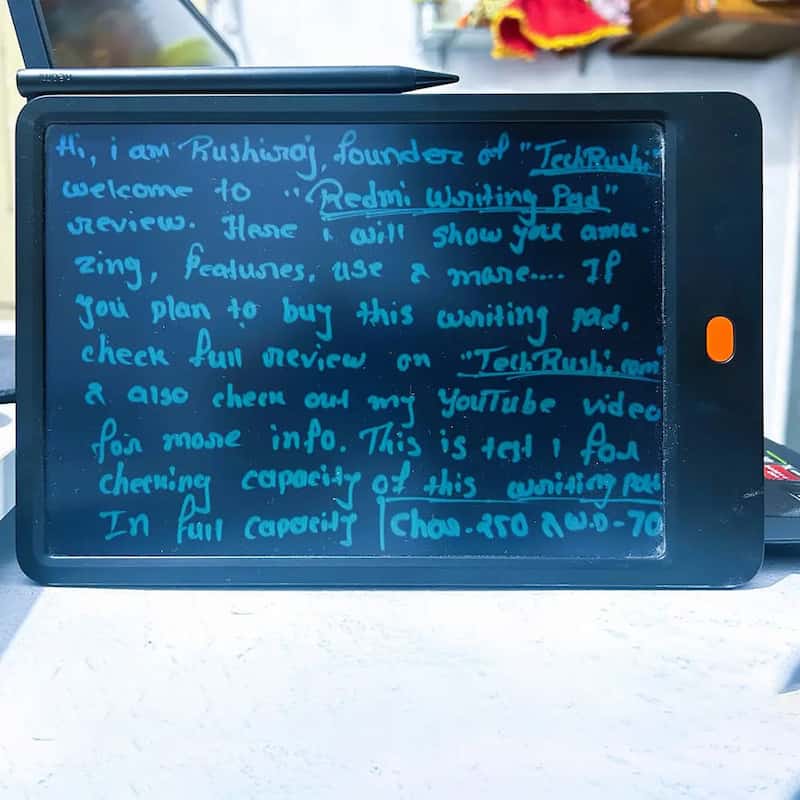 Hi, i am Rushiraj, founder of "TechRushi
welcome to "Redmi Writing Pad"
review. Here i will show you ama-
zing, features, use & more.... If
you plan to buy this writing pad,
check full review on "TechRushi.com"
& also check out my YouTube video
for more info. This is test 1 for
checking capacity of this writing pad
In full capacity | Char-250 & W.D-70